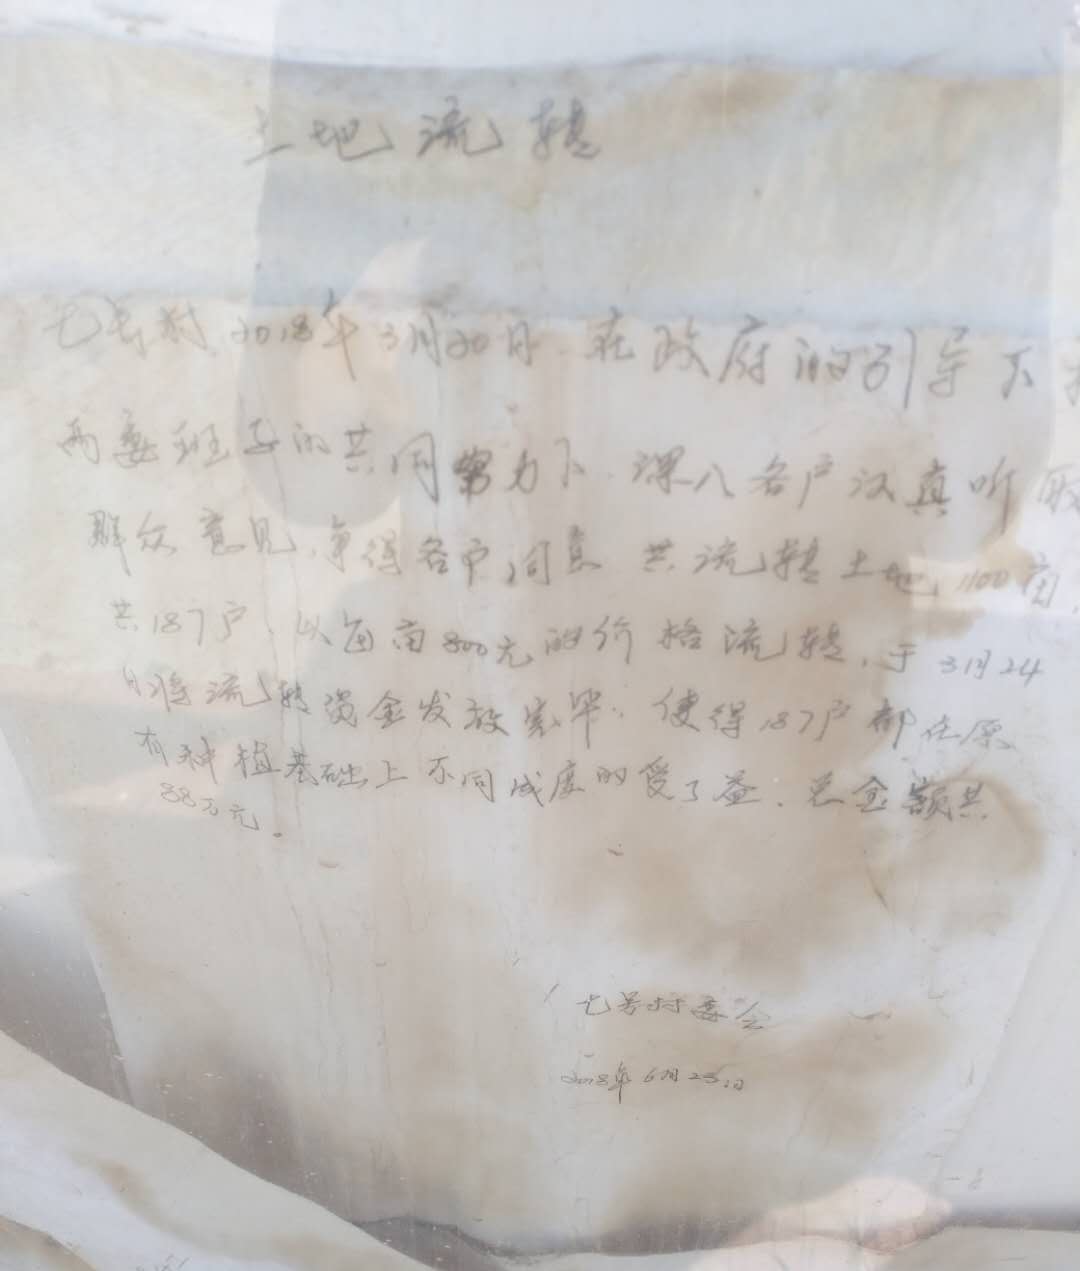 土地流转
七号村2018年3月20日.在政府的引导下
两委班子的共同努力下.深入各户认真听取
群众意见,争得各户同意 共流转土地1100亩,
共187户.以每亩800元的价格流转,于3月24
日将流转资金发放完毕.使得187户都在原
有种植基础上不同成度的受了益.总金额共
88万元。
七号村委会
2018年6月25日